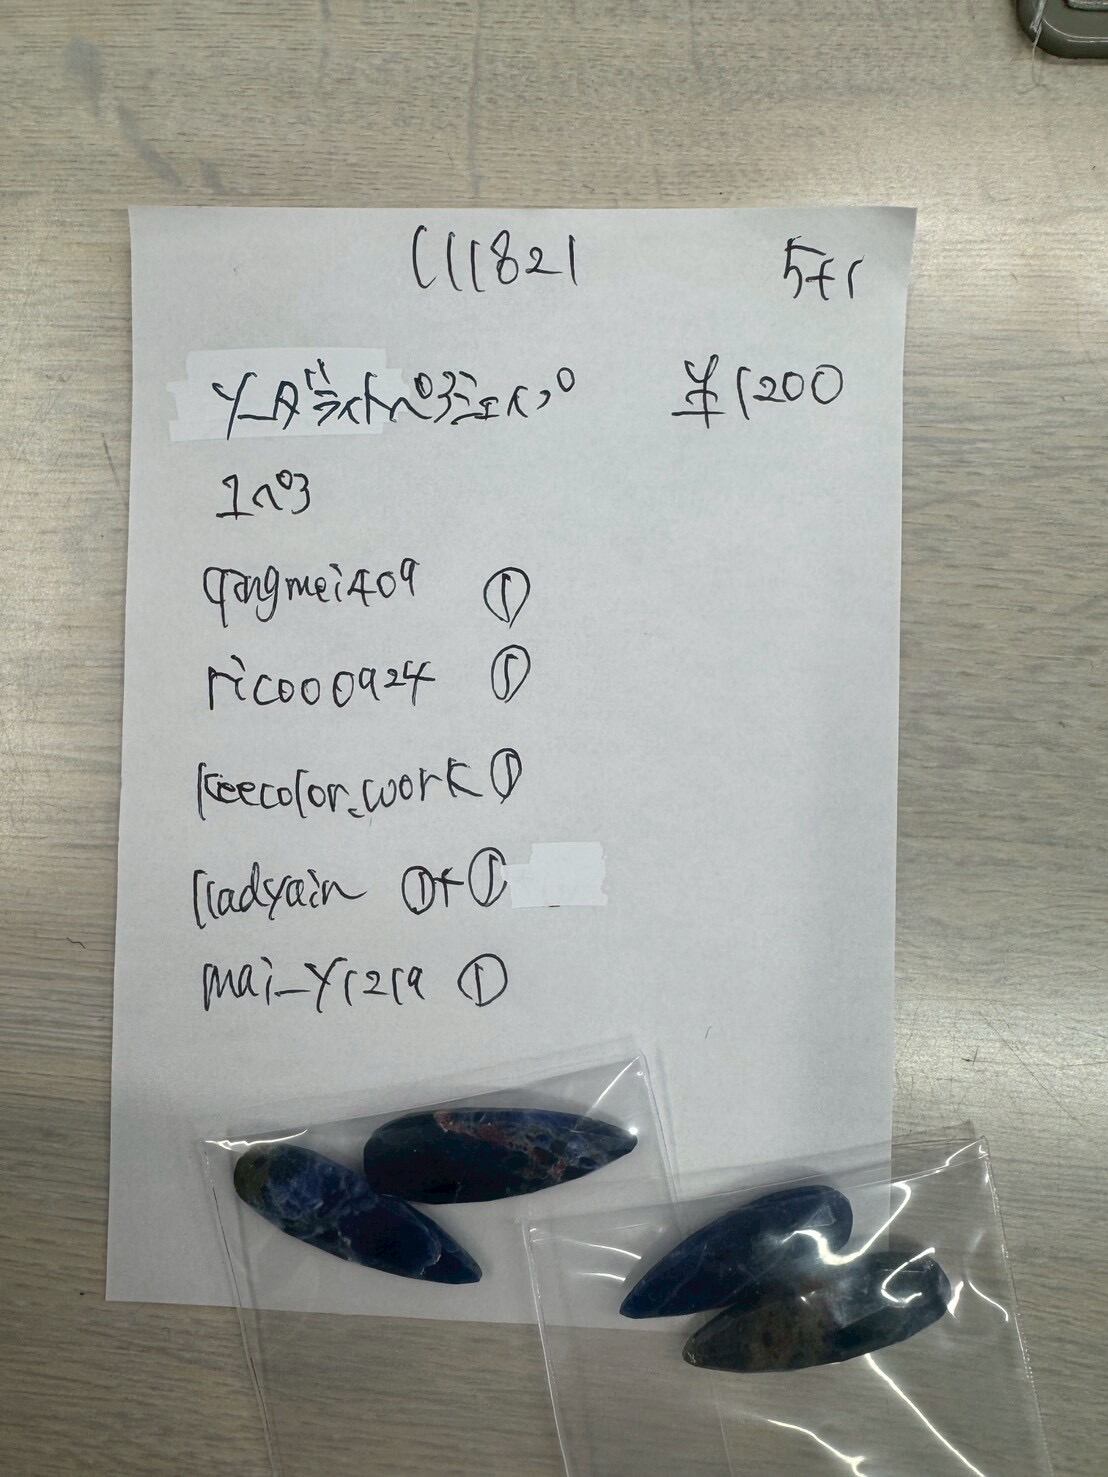 111821 5+1
ソーダライトペアシェイプ ¥1200
1ペア
qangmei409 ①
ricooo924 ①
keecolor_work ①
lladyain ①+①
mai_y1219 ①